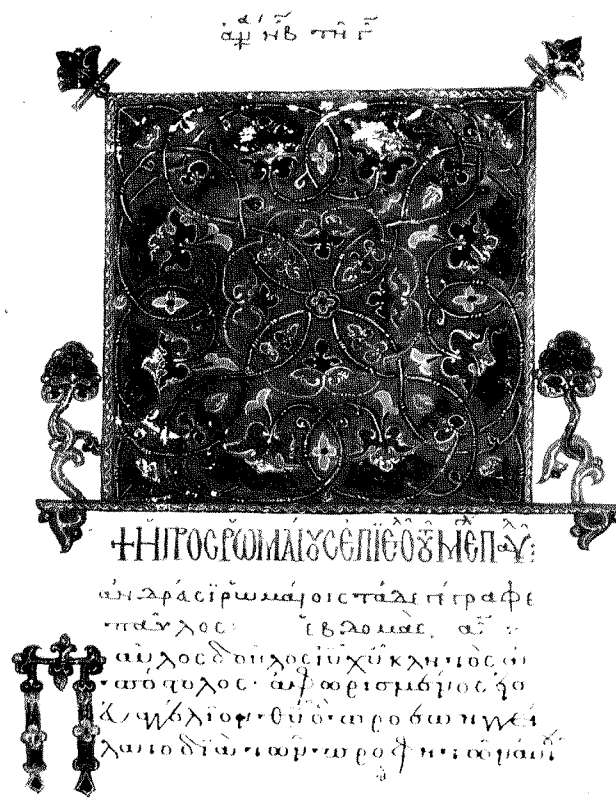 + Ἡ ΠΡΟC ΡΩΜΑΙΟΥC
ἀνδράσι ῥωμαίοις τάδε γέγραφε
παῦλος· ἑβδομὰς α
Παῦλος δοῦλος ιυ χυ κλητὸς ἀ
πόστολος· ἀφωρισμένος εἰσ
εὐαγγέλιον θυ· ὃ προεπηγγεί
λατο διὰ τῶν προφητῶν αυ